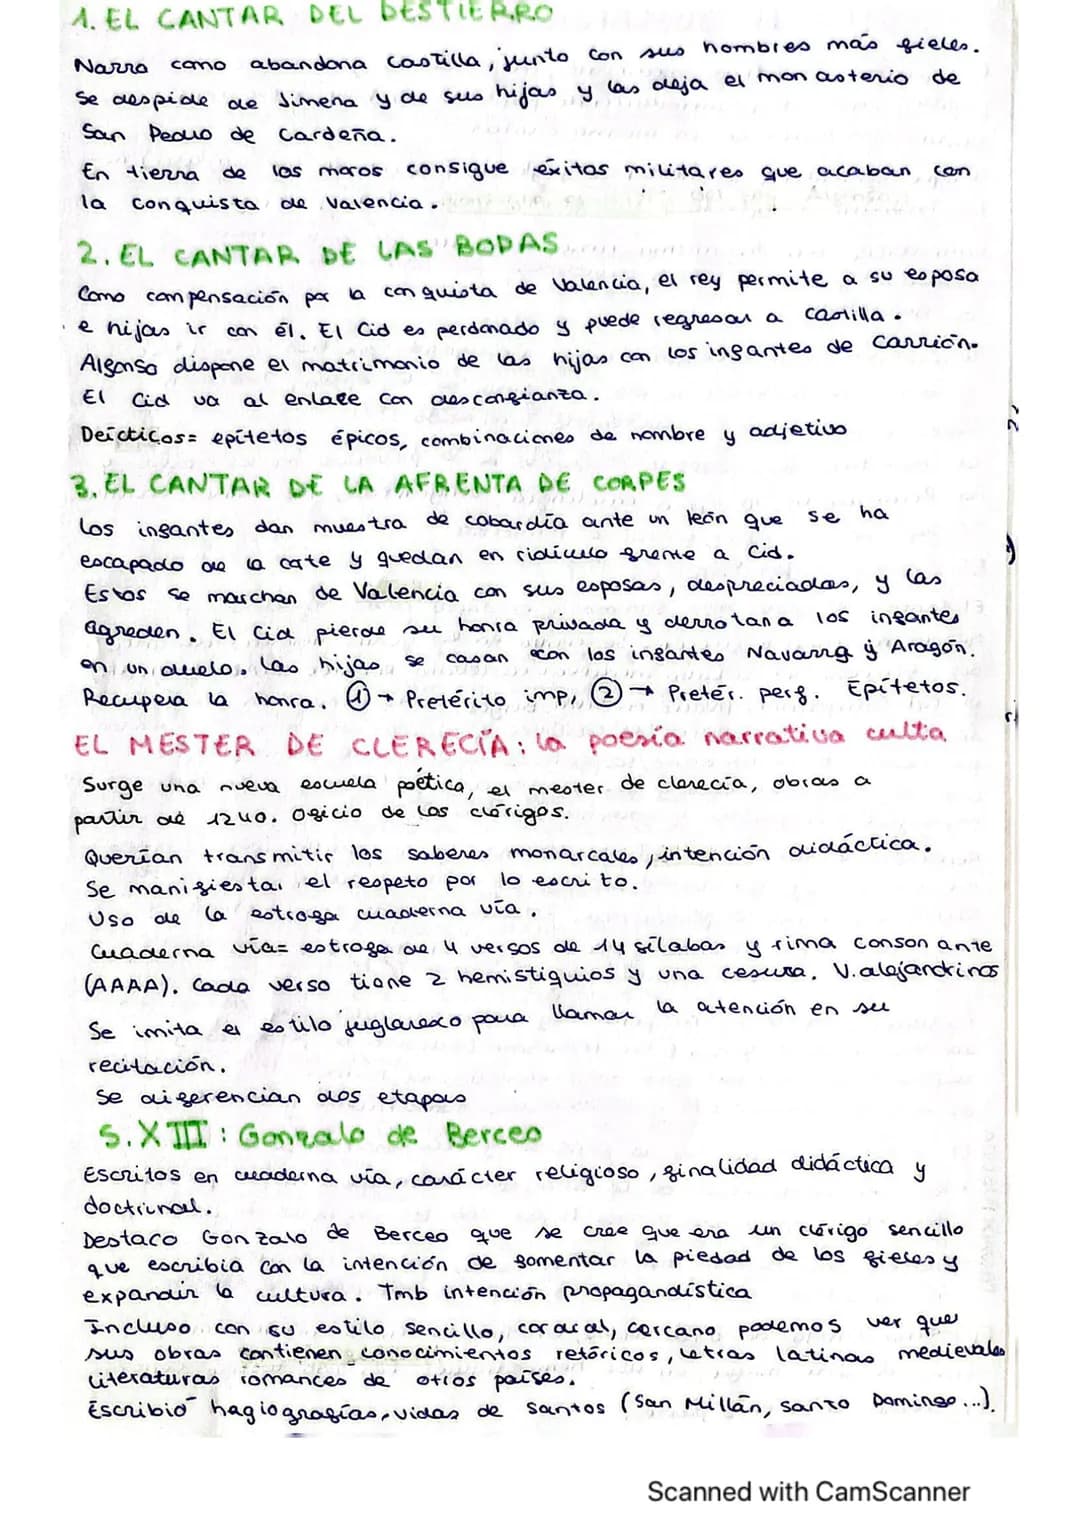 1. EL CANTAR DEL DESTIERRO
Narra como abandona Castilla, junto con sus hombres más fieles.
Se despide de Jimena y de sus hijas y las deja el monasterio de
San Pedro de Cardeña.
En tierra de los moros consigue éxitos militares que acaban con
la conquista de Valencia.
2. EL CANTAR DE LAS BODAS
Como compensación por la conquista de Valencia, el rey permite a su esposa
e hijas ir con él. El Cid es perdonado y puede regresar a Castilla.
Alfonso dispone el matrimonio de las hijas con los infantes de Carrión.
El Cid va al enlace con desconfianza.
Deícticos= epítetos épicos, combinaciones de nombre y adjetivo
3. EL CANTAR DE LA AFRENTA DE CORPES
Los infantes dan muestra de cobardía ante un león que se ha
escapado de la corte y quedan en ridículo frente a Cid.
Estos se marchan de Valencia con sus esposas, despreciadas, y las
agreden. El Cid pierde su honra privada y derrotan a los infantes
en un duelo. Las hijas se casan con los infantes Navarra y Aragón.
Recupera la honra. ① → Pretérito imp, ② → Pretér. perf. Epítetos.
EL MESTER DE CLERECÍA: la poesía narrativa culta
Surge una nueva escuela poética, el mester de clerecía, obras a
partir de 1240. Oficio de los clérigos.
Querían transmitir los saberes monarcales, intención didáctica.
Se manifiesta el respeto por lo escrito.
Uso de la estrofa cuaderna vía.
Cuaderna vía= estrofa de 4 versos de 14 sílabas y rima consonante
(AAAA). Cada verso tiene 2 hemistiquios y una cesura. V. alejandrinos
Se imita el estilo juglaresco para llamar la atención en su
recitación.
Se diferencian dos etapas
S.XIII: Gonzalo de Berceo
Escritos en cuaderna vía, carácter religioso, finalidad didáctica y
doctrinal.
Destaco Gonzalo de Berceo que se cree que era un clérigo sencillo
que escribía con la intención de fomentar la piedad de los fieles y
expandir la cultura. Tmb intención propagandística
Incluso con su estilo sencillo, coral, cercano podemos ver que
sus obras contienen conocimientos retóricos, letras latinas medievales
literaturas romances de otros países.
Escribió hagiografías, vidas de santos (San Millán, Santo Domingo...).
Scanned with CamScanner